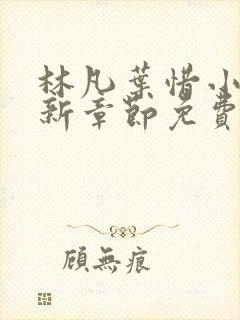 林凡葉惜小
新章節免費
顧無痕